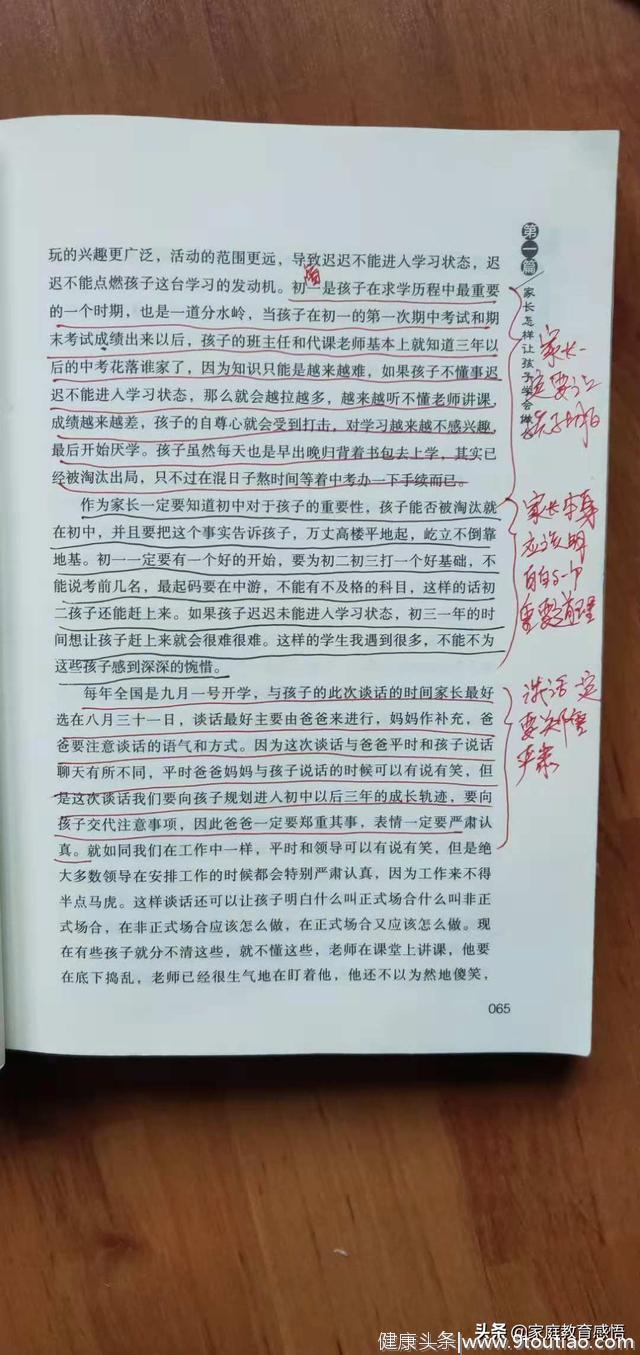 玩的兴趣更广泛，活动的范围更远，导致迟迟不能进入学习状态，迟
迟不能点燃孩子这台学习的发动机。初一是孩子在求学历程中最重要
的一个时期，也是一道分水岭，当孩子在初一的第一次期中考试和期
末考试成绩出来以后，孩子的班主任和代课老师基本上就知道三年以
后的中考花落谁家了，因为知识只能是越来越难，如果孩子不懂事迟
迟不能进入学习状态，那么就会越拉越多，越来越听不懂老师讲课，
成绩越来越差，孩子的自尊心就会受到打击，对学习越来越不感兴趣，
最后开始厌学。孩子虽然每天也是早出晚归背着书包去上学，其实已
经被淘汰出局，只不过在混日子熬时间等着中考办一下手续而已。
作为家长一定要知道初中对于孩子的重要性，孩子能否被淘汰就
在初中，并且要把这个事实告诉孩子，万丈高楼平地起，屹立不倒靠
地基。初一一定要有一个好的开始，要为初二初三打一个好基础，不
能说考前几名，最起码要在中游，不能有不及格的科目，这样的话初
二孩子还能赶上来。如果孩子迟迟未能进入学习状态，初三一年的时
间想让孩子赶上来就会很难很难。这样的学生我遇到很多，不能不为
这些孩子感到深深的惋惜。
每年全国是九月一号开学，与孩子的此次谈话的时间家长最好
选在八月三十一日，谈话最好主要由爸爸来进行，妈妈作补充，爸
爸要注意谈话的语气和方式。因为这次谈话与爸爸平时和孩子说话
聊天有所不同，平时爸爸妈妈与孩子说话的时候可以有说有笑，但
是这次谈话我们要向孩子规划进入初中以后三年的成长轨迹，要向
孩子交代注意事项，因此爸爸一定要郑重其事，表情一定要严肃认
真。就如同我们在工作中一样，平时和领导可以有说有笑，但是绝
大多数领导在安排工作的时候都会特别严肃认真，因为工作来不得
半点马虎。这样谈话还可以让孩子明白什么叫正式场合什么叫非正
式场合，在非正式场合应该怎么做，在正式场合又应该怎么做。现
在有些孩子就分不清这些，就不懂这些，老师在课堂上讲课，他要
在底下捣乱，老师已经很生气地在盯着他，他还不以为然地傻笑，
065
第一篇
家长怎样让孩子学会做
家长一
定要让
孩子
家长本身
应该明
白
重要道理
谈话一定
要
严肃
头条 @家庭教育感悟
健康头条|www.9toutiao.com